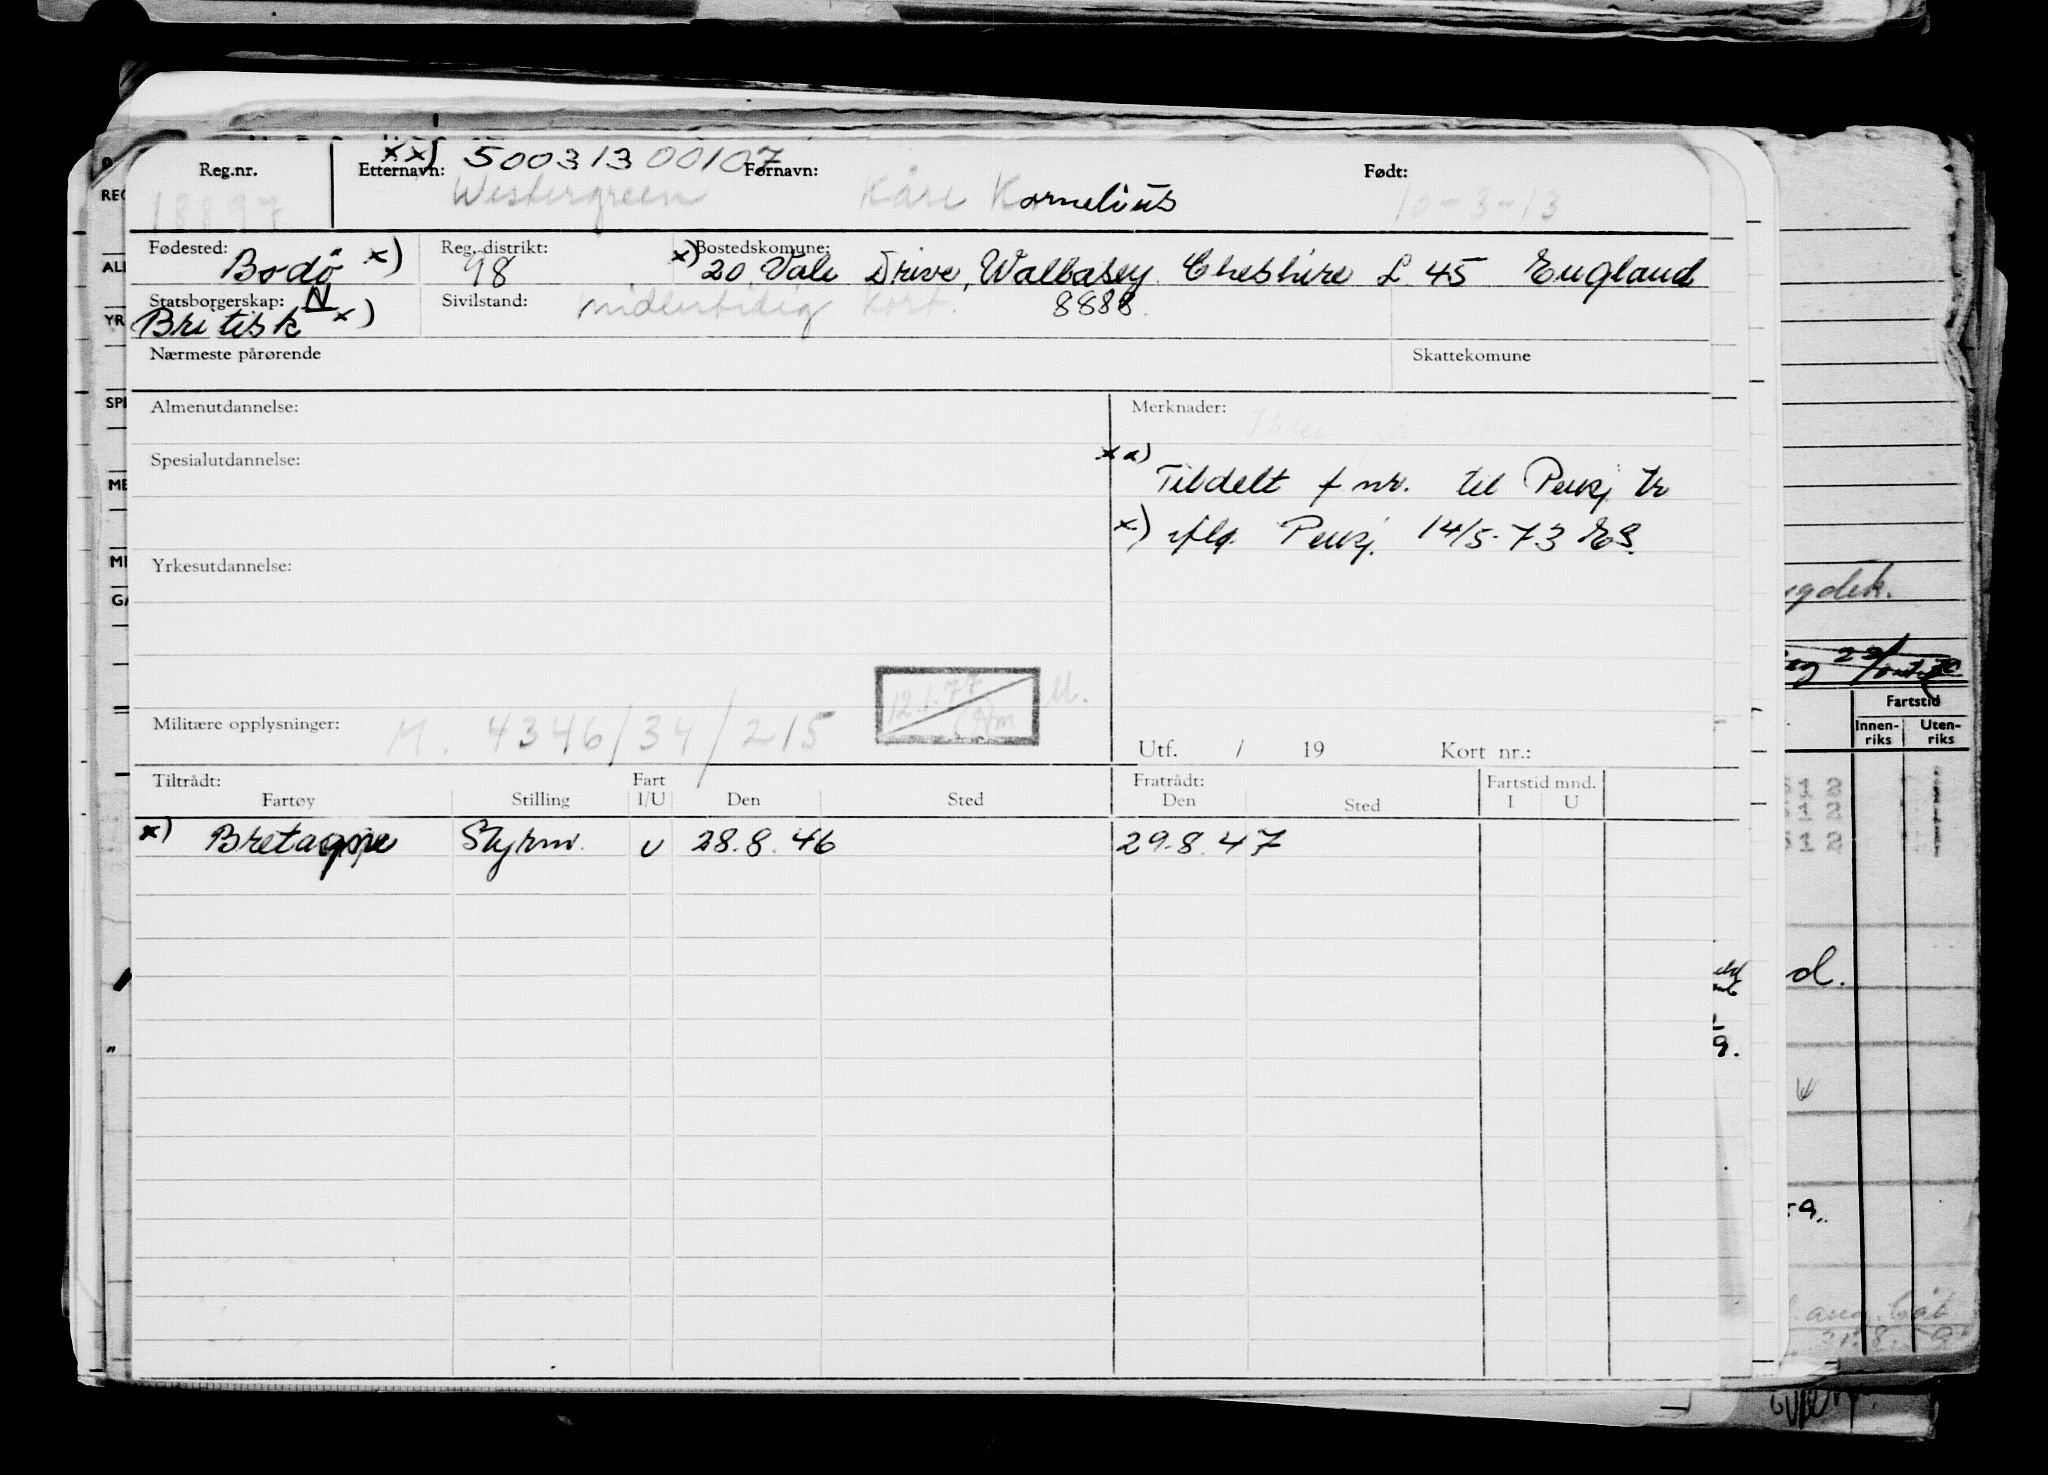 xx) 50031300107
Reg.nr. Etternavn: Fornavn: Født:
18897 Westergreen Kåre Kornelius 10-3-13
Fødested: Reg. distrikt: Bostedskomune:
Bodø x) 98 x) 20 Vale Drive, Wallasey. Cheshire L 45 England
Statsborgerskap: N Sivilstand: midlertidig kort. 8888.
Britisk x)
Nærmeste pårørende Skattekomune
Almenutdannelse: Merknader:
Spesialutdannelse: Tildelt f nr. til
x) 14/5-73 ES.
Yrkesutdannelse:
12.1.77
Militære opplysninger: M. 4346/34/215
Utf. / 19 Kort nr.:
Tiltrådt: Fart Fratrådt: Fartstid mnd.
Fartøy Stilling I/U Den Sted Den Sted I U
x) Bretagne Styrm. U 28.8.46 29.8.47
REG
ALI
YR
SPE
ME
MI
GA
Fartstid
Innen-riks Uten-riks
512
512
512
d.
9.